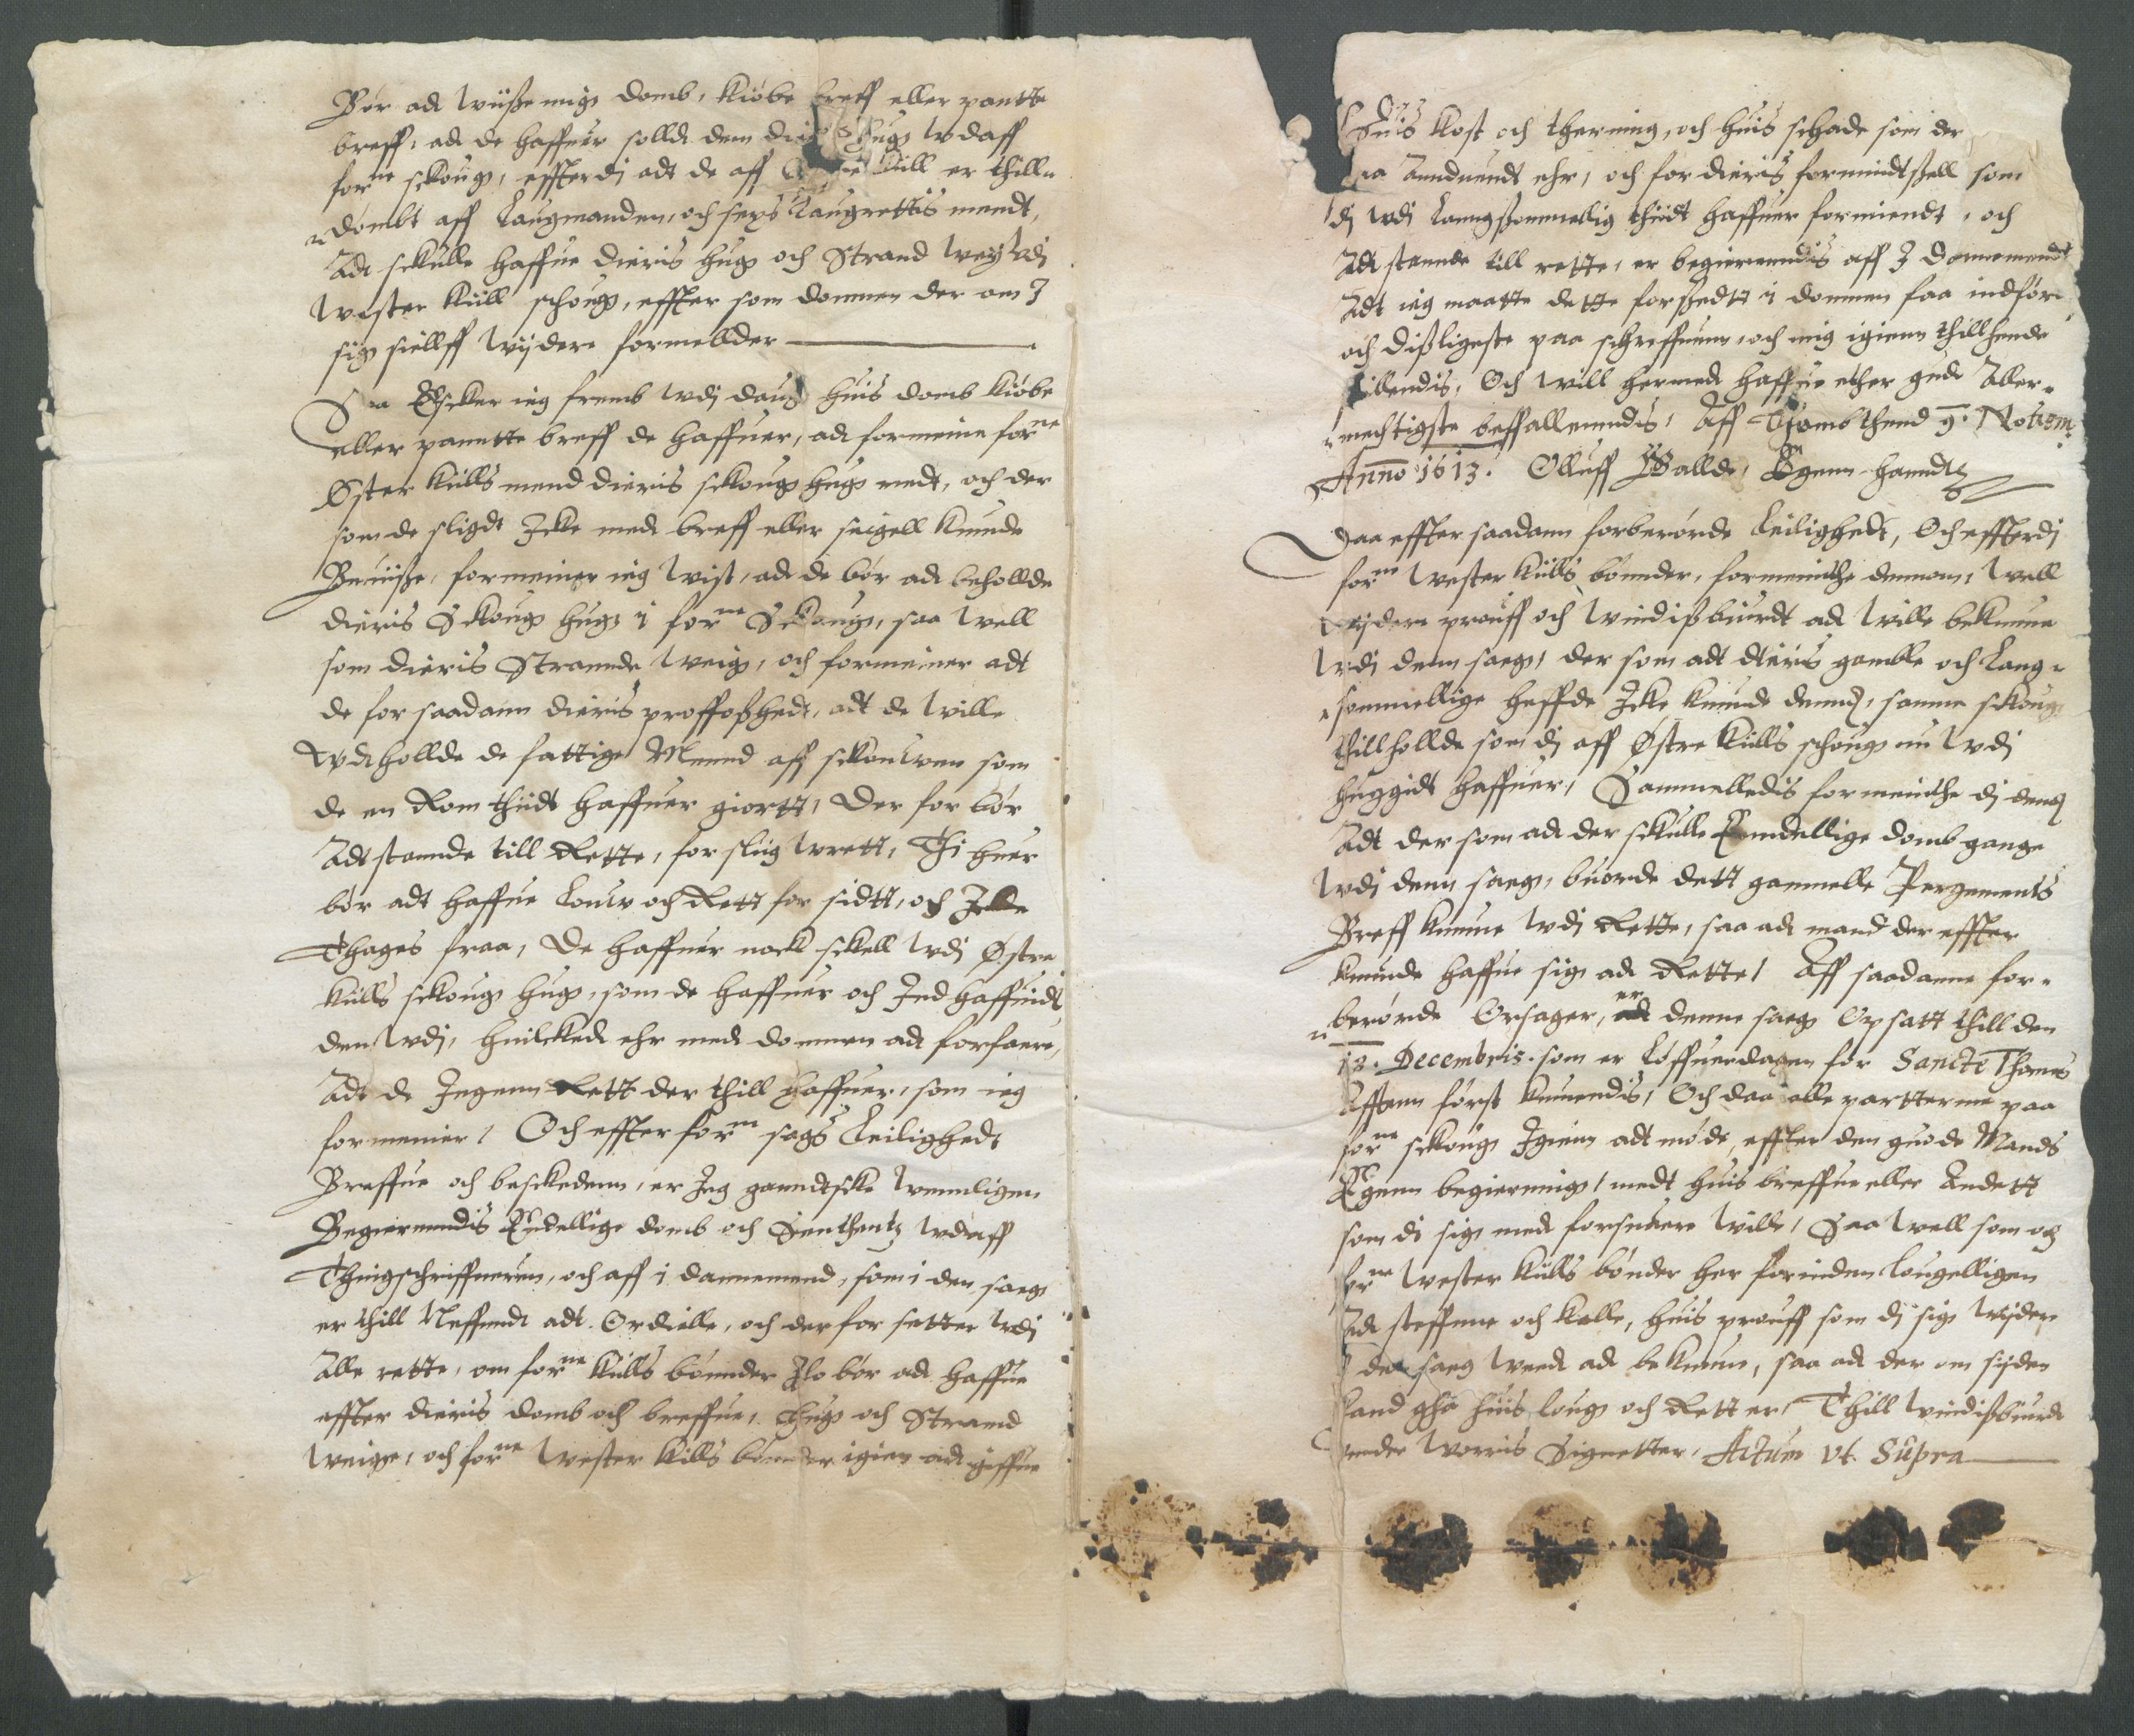 Bør ad wiiße mig domb, kiøbe breff eller pantte
breff, ad de haffuer solldt dem dieris hug wdaff
forne sckoug, effterdj adt de aff Kiill er thill
dømbt aff Laugmanden, och sexs Laugrettis mendt,
Adt sckulle haffue dieris hug och Strand wey wdj
Wester Kiill schoug, effter som dommen der om J
sig siellff wijdere formellder
Saa Escker ieg fremb wdj daug huis domb kiøbe
eller panntte breff de haffuer, ad formeine forne
Øster Kiills mend dieris sckoug hug medt, och der
som de sligdt Icke medt breff eller seigell kunde
Beuiiße, formeiner ieg wist, ad de bør ad beholde
dieris Sckoug hug i forne Sckoug, saa well
som dieris Strannde weig, och formeiner adt
de for saadann dieris proffoßhedt, adt de wille
Wdhollde de fattige Mennd aff sckouwen som
de en Rom thiidt haffuer giortt, Der for bør
Adt stannde till Rette, for sliig wrett, Thi huer
bør adt haffue Louw och Rett for sidtt, och Icke
Thages fraa, De haffuer nock sckell wdj Østre
Kiills sckoug hug, som de haffuer och Ind haffuidt
den wdj, huilckedt ehr medt dommen adt forfare,
Adt de Ingenn Rett der thill haffuer, som ieg
formenier, Och effter forne sags Leilighedt
Breffue och besckedenn, er Jeg ganndtscke wennligen
Begierenndis Endellige domb och Senthentz wdaff
Thingschriffueren, och aff i dannemend, som i den saeg
er thill Neffendt adt Ordielle, och der for setter wdj
Alle rette, om forne Kiills bønnder Jlo bør ad haffue
effter dieris domb och breffue, Hug och Strannd
weige, och forne Wester Kiills bønnder igien adt giffue
Huis kost och thering, och huis schade som der
paa annduendt ehr, och for dieris formindtßell som
dj wdj Lanngßommellig thiidt haffuer formiendt, och
Adt stannde till rette, er begierenndis aff J dannemendt
Adt ieg maatte dette forßedtt i dommen faa indføre
och dißligeste paa schreffuenn, och mig igienn thillhende
stillendis, Och will hermedt haffue ether gudt Aller-
mechtigste beffallenndis, Aff Thombthend 9. Nouem.
Anno 1613. Olluff Galle, Egenn hanndt
Daa effter saadann forberørde Leilighedt, Och effterdj
forne Wester Kiills bønnder, formeinthe dennom, well
wijdere prouff och windißbiurdt ad wille bekomme
wdj denn saeg, der som adt dieris gamble och Lang-
sommellige heffde Icke kunde dennom, samme sckoug
thillhollde som dj aff Østre Kiills schoug nu wdj
huggidt haffuer, Sammelledis formeinthe dj dennom
Adt der som ad der sckulle Enndellige domb gange
wdj denn saeg, buorde dett gammelle Pergements
Breff komme wdj Rette, saa ad mand der effter
kunde haffue sig ad Rette, Aff saadanne for-
berørde Orsager, er denne saeg Opsatt thill den
18. Decembris. som er Løffuerdagen før Sancte Thomes
Afftenn først kommendis, Och daa alle partterne paa
forne sckoug Igienn adt møde, effter den guode Mands
Egenn begierinng, medt huis breffue eller Andett
som di sig medt forsuare wille, Saa well som och
forne Wester Kiills bønder her forinden lougelligen
Ad steffnne och kalle, huis prouff som dj sig wijdere
J den saeg wend ad bekomme, saa ad der om sijden
kand gha huis Loug och Rett er, Thill windißbiurdt
wnder worris Signetter, Actum vt Supra